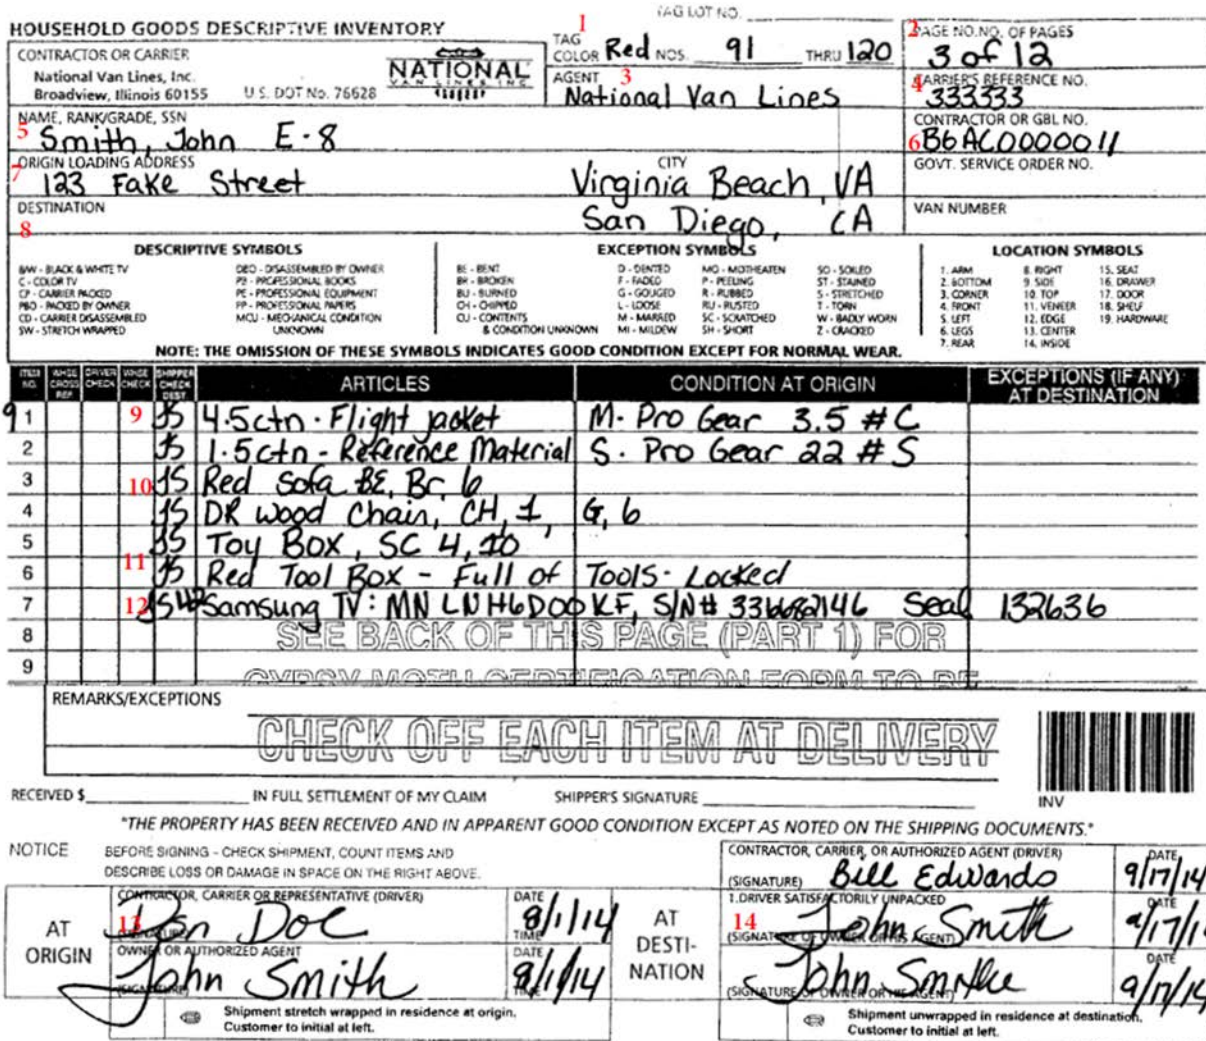 TAG LOT NO.
HOUSEHOLD GOODS DESCRIPTIVE INVENTORY
1
TAG COLOR Red NOS. 91 THRU 120
2 PAGE NO. NO. OF PAGES
3 of 12
CONTRACTOR OR CARRIER
National Van Lines, Inc.
Broadview, Illinois 60155 U.S. DOT No. 76628
NATIONAL
VAN LINES INC
AGENT 3
National Van Lines
4 CARRIER'S REFERENCE NO.
333333
NAME, RANK/GRADE, SSN
5 Smith, John E-8
CONTRACTOR OR GBL NO.
6 B6AC0000011
7 ORIGIN LOADING ADDRESS CITY
123 Fake Street Virginia Beach, VA
GOVT. SERVICE ORDER NO.
DESTINATION
8 San Diego, CA
VAN NUMBER
DESCRIPTIVE SYMBOLS
B/W - BLACK & WHITE TV
C - COLOR TV
CP - CARRIER PACKED
PBO - PACKED BY OWNER
CD - CARRIER DISASSEMBLED
SW - STRETCH WRAPPED
DBO - DISASSEMBLED BY OWNER
PB - PROFESSIONAL BOOKS
PE - PROFESSIONAL EQUIPMENT
PP - PROFESSIONAL PAPERS
MCU - MECHANICAL CONDITION
UNKNOWN
EXCEPTION SYMBOLS
BE - BENT
BR - BROKEN
BU - BURNED
CH - CHIPPED
CU - CONTENTS
& CONDITION UNKNOWN
D - DENTED
F - FADED
G - GOUGED
L - LOOSE
M - MARRED
MI - MILDEW
MO - MOTHEATEN
P - PEELING
R - RUBBED
RU - RUSTED
SC - SCRATCHED
SH - SHORT
SO - SOILED
ST - STAINED
S - STRETCHED
T - TORN
W - BADLY WORN
Z - CRACKED
LOCATION SYMBOLS
1. ARM
2. BOTTOM
3. CORNER
4. FRONT
5. LEFT
6. LEGS
7. REAR
8. RIGHT
9. SIDE
10. TOP
11. VENEER
12. EDGE
13. CENTER
14. INSIDE
15. SEAT
16. DRAWER
17. DOOR
18. SHELF
19. HARDWARE
NOTE: THE OMISSION OF THESE SYMBOLS INDICATES GOOD CONDITION EXCEPT FOR NORMAL WEAR.
ITEM NO. WHSE CROSS REF DRIVER CHECK WHSE CHECK SHIPPER CHECK DEST ARTICLES CONDITION AT ORIGIN EXCEPTIONS (IF ANY) AT DESTINATION
91 9 JS 4.5ctn - Flight jacket M- Pro Gear 3.5 # C
2 JS 1.5ctn - Reference Material S. Pro Gear 22 # S
3 10 JS Red Sofa BE, Br, 6
4 JS DR Wood Chair, CH, 1, G, 6
5 JS Toy Box, SC 4, 10
6 11 JS Red Tool Box - Full of Tools - Locked
7 12 JS Samsung TV: MN LNH6DOO KF, S/N# Seal 132636
8 SEE BACK OF THIS PAGE (PART 1) FOR
9 GYPSY MOTH CERTIFICATION FORM TO BE
REMARKS/EXCEPTIONS
CHECK OFF EACH ITEM AT DELIVERY
RECEIVED $ IN FULL SETTLEMENT OF MY CLAIM SHIPPER'S SIGNATURE
INV
"THE PROPERTY HAS BEEN RECEIVED AND IN APPARENT GOOD CONDITION EXCEPT AS NOTED ON THE SHIPPING DOCUMENTS."
NOTICE BEFORE SIGNING - CHECK SHIPMENT, COUNT ITEMS AND
DESCRIBE LOSS OR DAMAGE IN SPACE ON THE RIGHT ABOVE.
AT ORIGIN
CONTRACTOR, CARRIER OR REPRESENTATIVE (DRIVER) DATE
13 Don Doe 8/1/14
TIME
OWNER OR AUTHORIZED AGENT DATE
John Smith 8/1/14
(SIGNATURE) TIME
Shipment stretch wrapped in residence at origin.
Customer to initial at left.
AT DESTI-NATION
CONTRACTOR, CARRIER, OR AUTHORIZED AGENT (DRIVER) DATE
(SIGNATURE) Bill Edwards 9/17/14
1. DRIVER SATISFACTORILY UNPACKED DATE
14 John Smith 9/17/14
(SIGNATURE OF OWNER OR HIS AGENT)
DATE
John Smith 9/17/14
(SIGNATURE OF OWNER OR HIS AGENT)
Shipment unwrapped in residence at destination.
Customer to initial at left.